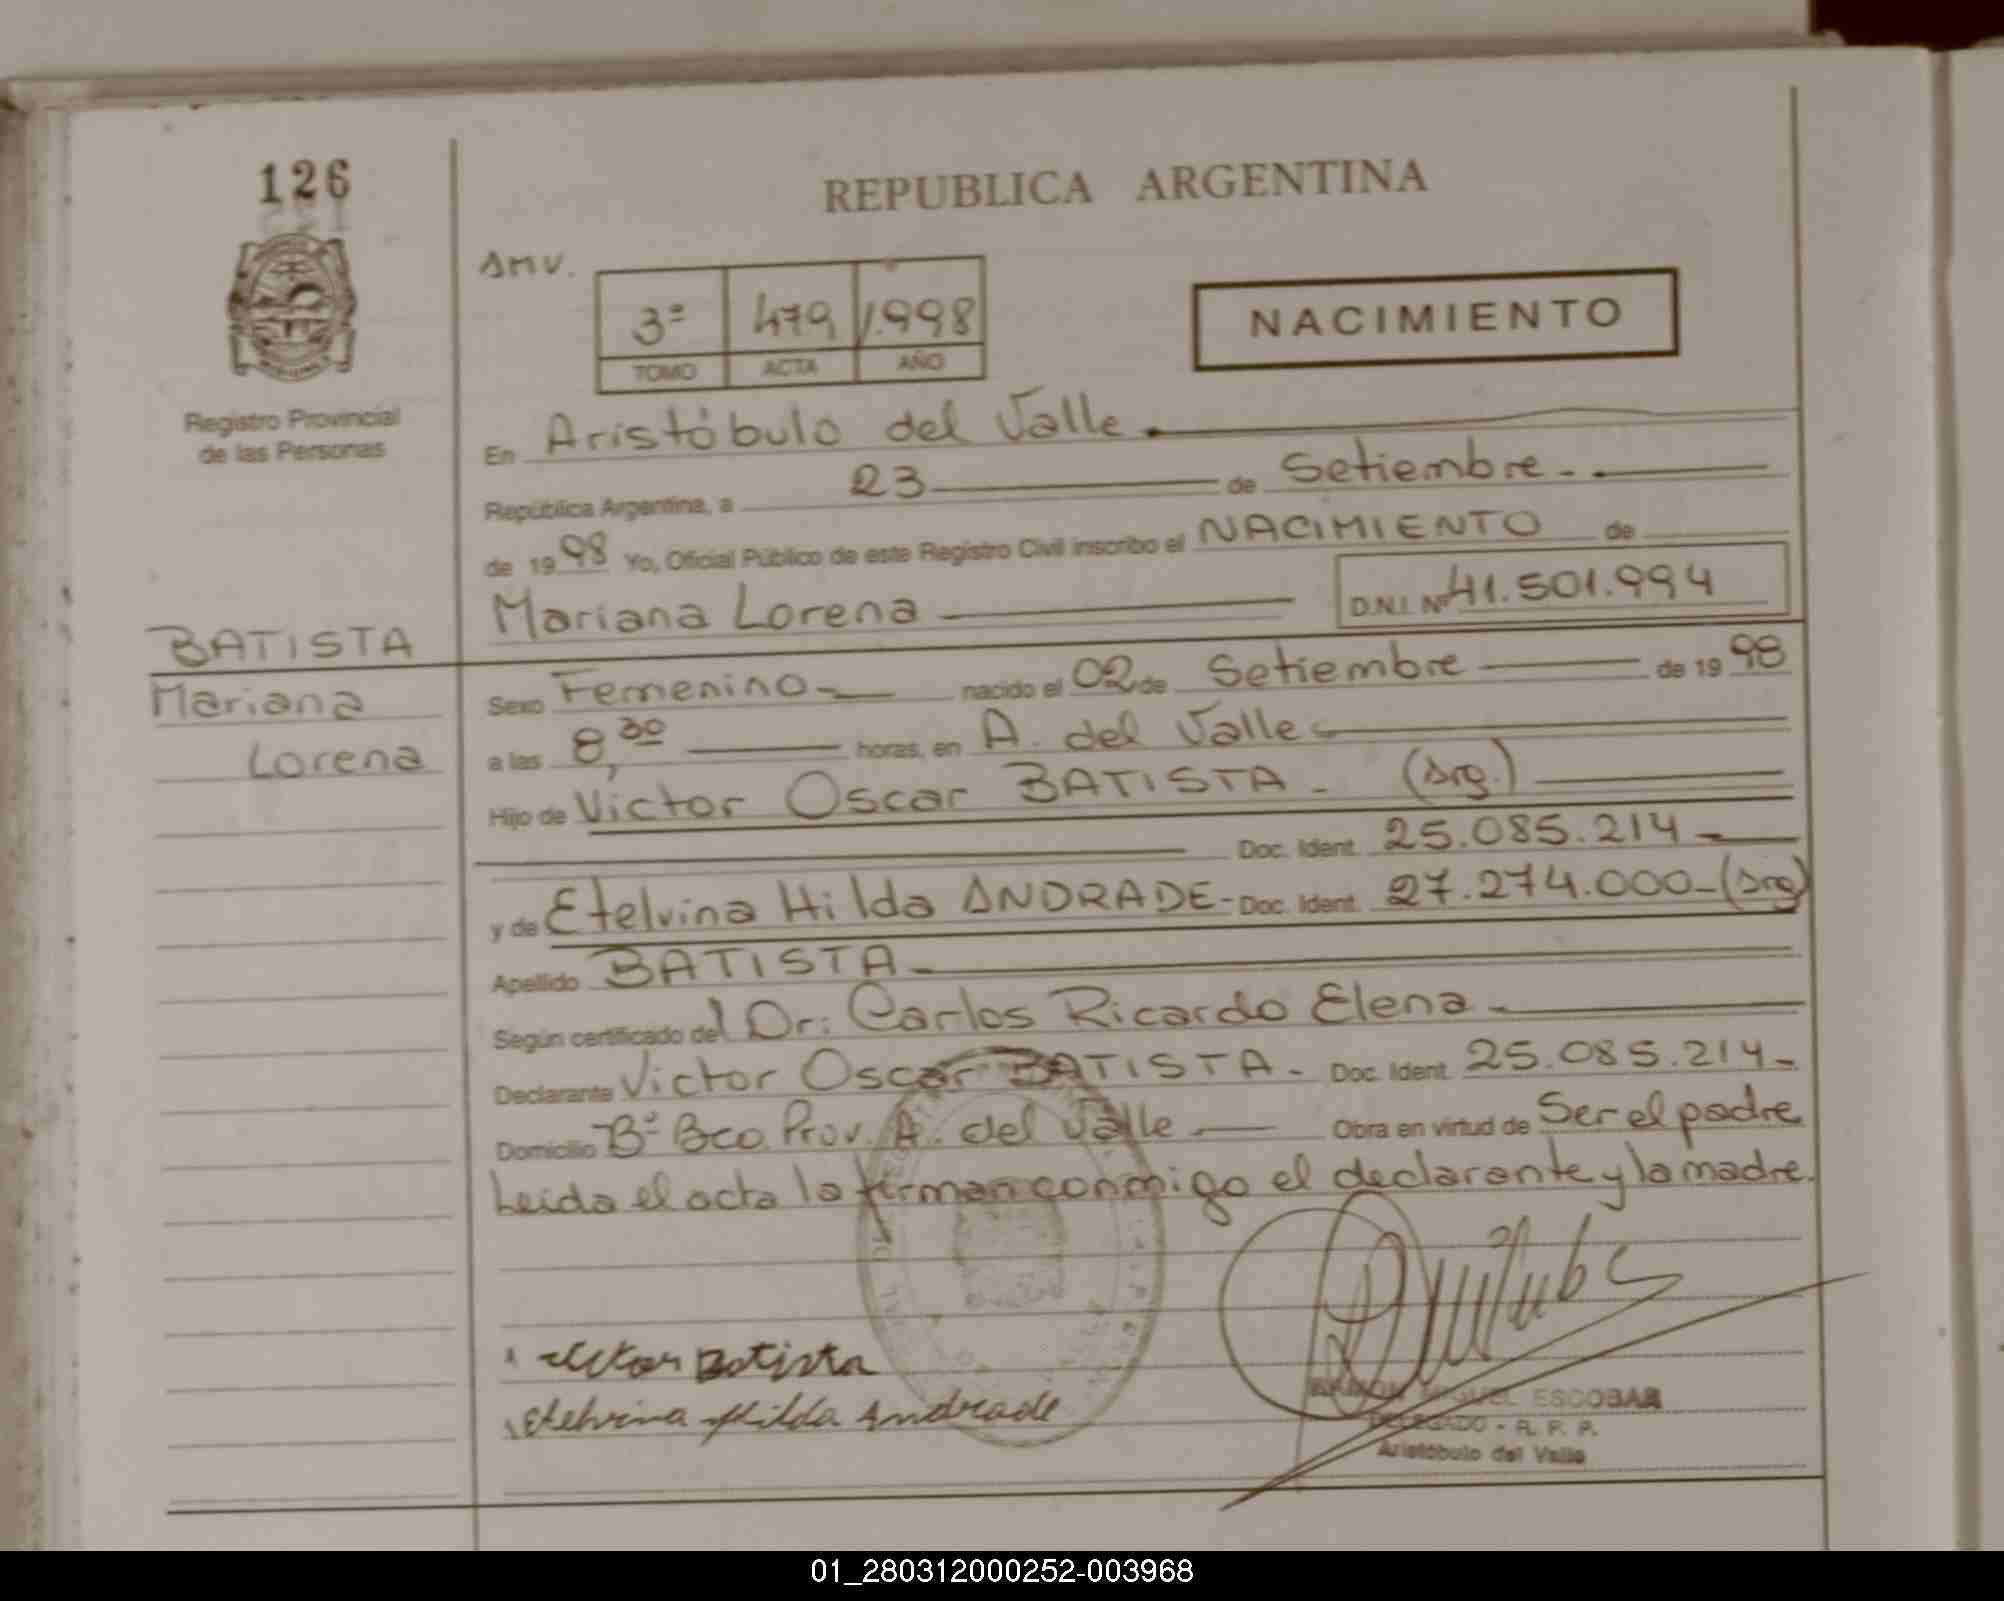 126
REPUBLICA ARGENTINA
AMV.
3ª 479 1.998
TOMO ACTA AÑO
NACIMIENTO
Registro Provincial
de las Personas
En Aristóbulo del Valle.
República Argentina, a 23 de Setiembre-.
de 1998 Yo, Oficial Público de este Registro Civil inscribo el NACIMIENTO de
Mariana Lorena D.N.I. Nº 41.501.994
BATISTA
Mariana
Lorena
Sexo Femenino- nacido el 02 de Setiembre de 1998
a las 8,30 horas, en A. del Valle
Hijo de Victor Oscar BATISTA - (Arg.)
Doc. Ident. 25.085.214-
y de Etelvina Hilda ANDRADE- Doc. Ident. 27.274.000-(Arg)
Apellido BATISTA-
Según certificado del Dr: Carlos Ricardo Elena-
Declarante Victor Oscar BATISTA- Doc. Ident. 25.085.214-
Domicilio Bº Bco. Prov. A. del Valle Obra en virtud de Ser el padre
Leida el acta la firman conmigo el declarante y la madre.
Victor Batista
Etelvina Hilda Andrade
RAMON MIGUEL ESCOBAR
DELEGADO - R. P. P.
Aristóbulo del Valle
01_280312000252-003968